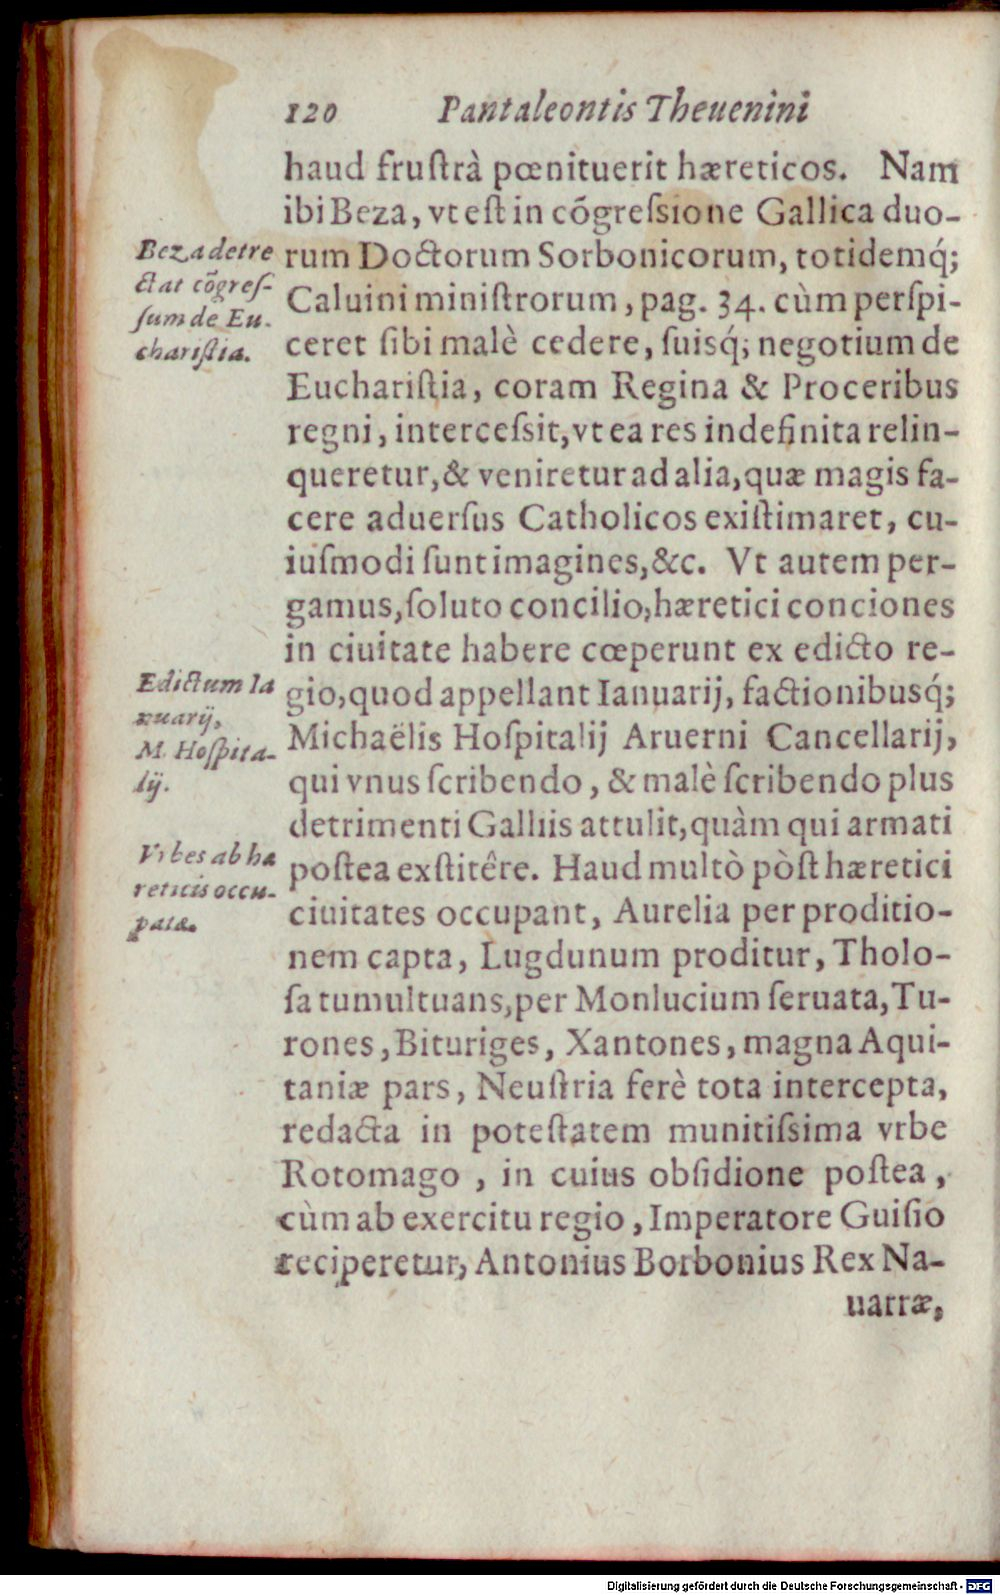 120 Pantaleontis Theuenini
haud frustrà pœnituerit hæreticos. Nam
ibi Beza, vt est in cõgressione Gallica duo-
rum Doctorum Sorbonicorum, totidemq́;
Caluini ministrorum, pag. 34. cùm perspi-
ceret sibi malè cedere, suisq́; negotium de
Eucharistia, coram Regina & Proceribus
regni, intercessit, vt ea res indefinita relin-
queretur, & veniretur ad alia, quæ magis fa-
cere aduersus Catholicos existimaret, cu-
iusmodi sunt imagines, &c. Vt autem per-
gamus, soluto concilio, hæretici conciones
in ciuitate habere cœperunt ex edicto re-
gio, quod appellant Ianuarij, factionibusq́;
Michaëlis Hospitalij Aruerni Cancellarij,
qui vnus scribendo, & malè scribendo plus
detrimenti Galliis attulit, quàm qui armati
postea exstitêre. Haud multò pòst hæretici
ciuitates occupant, Aurelia per proditio-
nem capta, Lugdunum proditur, Tholo-
sa tumultuans, per Monlucium seruata, Tu-
rones, Bituriges, Xantones, magna Aqui-
taniæ pars, Neustria ferè tota intercepta,
redacta in potestatem munitissima vrbe
Rotomago, in cuius obsidione postea,
cùm ab exercitu regio, Imperatore Guisio
reciperetur, Antonius Borbonius Rex Na-
uarræ,
Beza detre
ctat cõgres-
sum de Eu.
charistia.
Edictum Ia
nuarij,
M. Hospita-
lij.
Vrbes ab hæ
reticis occu-
patæ.
Digitalisierung gefördert durch die Deutsche Forschungsgemeinschaft - DFG